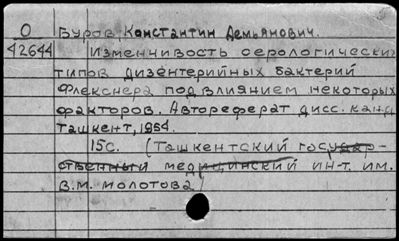 О Буров, Константин Демьянович.
42644 Изменчивость серологических
типов дизентерийных бактерий
Флекснера под влиянием некоторых
факторов. Автореферат дисс. канд.
Ташкент, 1954.
15с. (Ташкентский государ-
ственный медицинский ин-т. им.
В.М. Молотова)